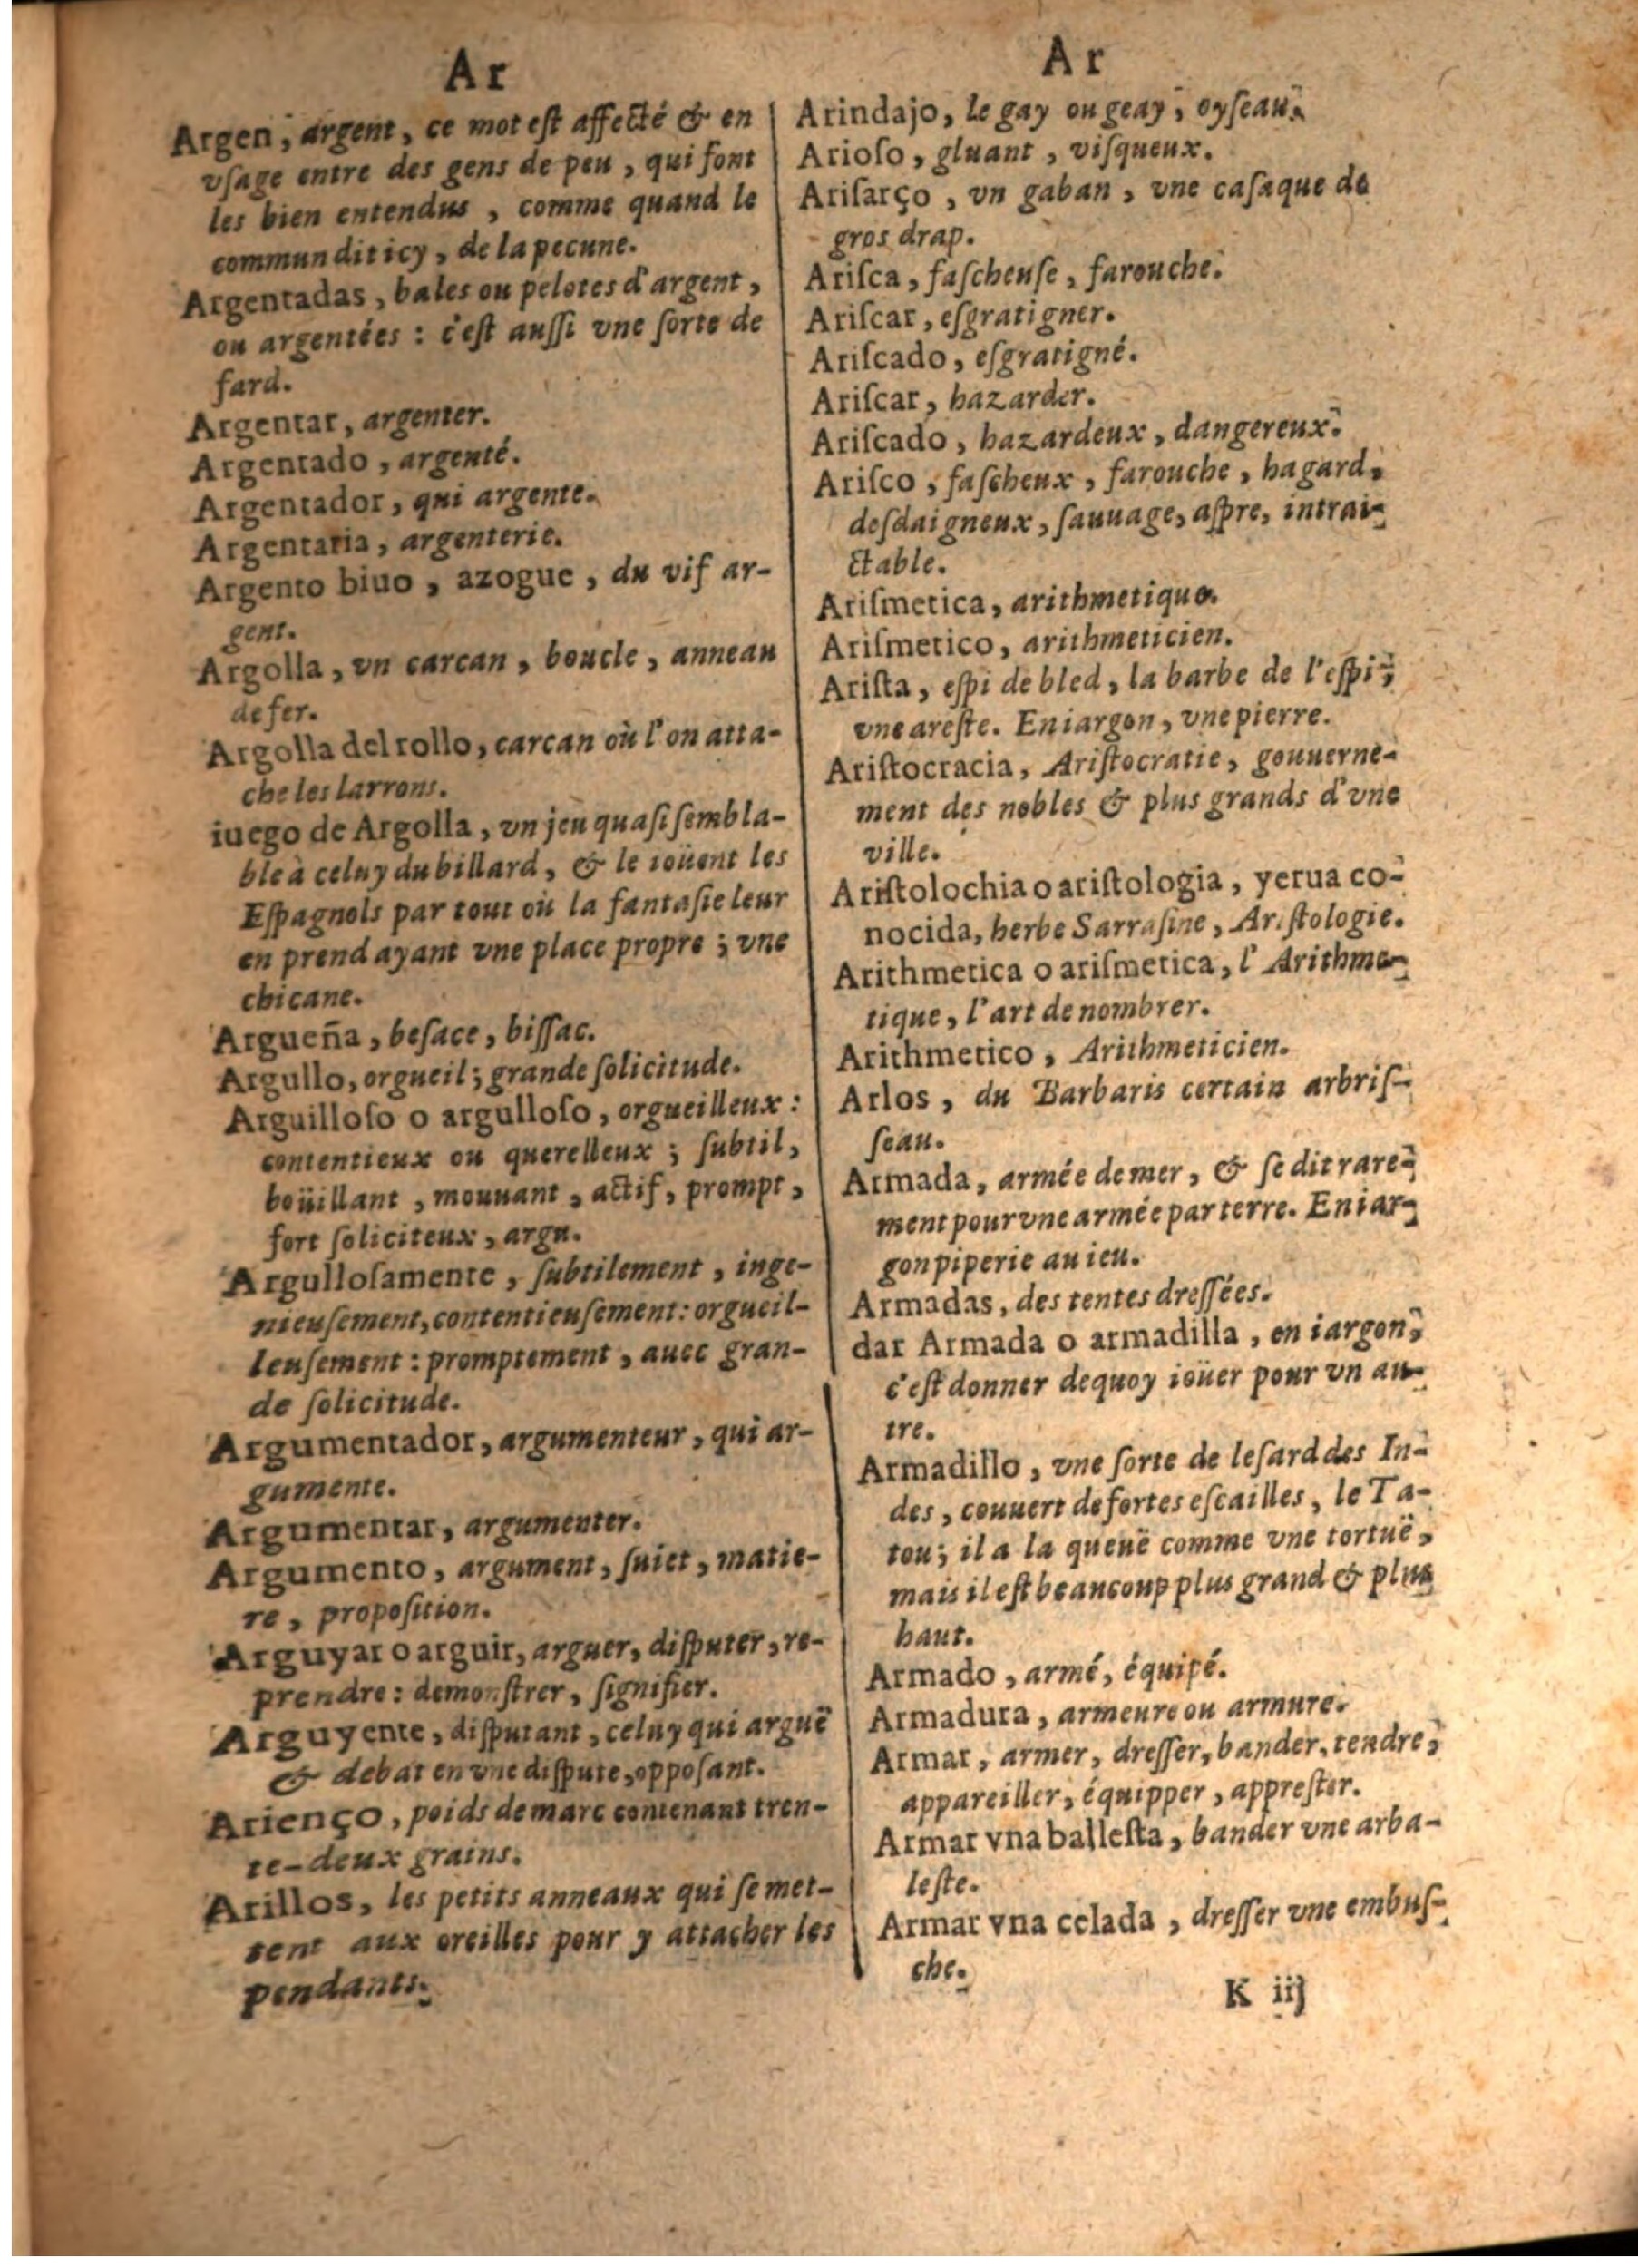 Ar
Argen, argent, ce mot eſt affecté & en
vſage entre des gens de peu, qui font
les bien entendus, comme quand le
commun dit icy, de la pecune.
Argentadas, bales ou pelotes d'argent,
ou argentées : c'eſt auſſi vne ſorte de
fard.
Argentar, argenter.
Argentado, argenté.
Argentador, qui argente.
Argentaria, argenterie.
Argento biuo, azogue, du vif ar-
gent.
Argolla, vn carcan, boucle, anneau
de fer.
Argolla del rollo, carcan où l'on atta-
che les larrons.
iuego de Argolla, vn jeu quaſi ſembla-
ble à celuy du billard, & le ioüent les
Eſpagnols par tout où la fantaſie leur
en prend ayant vne place propre ; vne
chicane.
Argueña, beſace, biſſac.
Argullo, orgueil ; grande ſolicitude.
Arguilloſo o argulloſo, orgueilleux :
contentieux ou querelleux ; ſubtil,
boüillant, mouuant, actif, prompt,
fort ſoliciteux, argu.
Argulloſamente, ſubtilement, inge-
nieuſement, contentieuſement : orgueil-
leuſement : promptement, auec gran-
de ſolicitude.
Argumentador, argumenteur, qui ar-
gumente.
Argumentar, argumenter.
Argumento, argument, ſuiet, matie-
re, propoſition.
Arguyar o arguir, arguer, diſputer, re-
prendre : demonſtrer, ſignifier.
Arguyente, diſputant, celuy qui arguë
& debat en vne diſpute, oppoſant.
Arienço, poids de marc contenant tren-
te-deux grains.
Arillos, les petits anneaux qui ſe met-
tent aux oreilles pour y attacher les
pendants.
Ar
Arindajo, le gay ou geay, oyſeau.
Arioſo, gluant, viſqueux.
Ariſarço, vn gaban, vne caſaque de
gros drap.
Ariſca, faſcheuſe, farouche.
Ariſcar, eſgratigner.
Ariſcado, eſgratigné.
Ariſcar, hazarder.
Ariſcado, hazardeux, dangereux.
Ariſco, faſcheux, farouche, hagard,
deſdaigneux, ſauuage, aſpre, intrai-
ctable.
Ariſmetica, arithmetique.
Ariſmetico, arithmeticien.
Ariſta, eſpi de bled, la barbe de l'eſpi,
vne areſte. En iargon, vne pierre.
Ariſtocracia, Ariſtocratie, gouuerne-
ment des nobles & plus grands d'vne
ville.
Ariſtolochia o ariſtologia, yerua co-
nocida, herbe Sarraſine, Ariſtologie.
Arithmetica o ariſmetica, l'Arithme-
tique, l'art de nombrer.
Arithmetico, Arithmeticien.
Arlos, du Barbaris certain arbriſ-
ſeau.
Armada, armée de mer, & ſe dit rare-
ment pour vne armée par terre. En iar-
gon piperie au ieu.
Armadas, des tentes dreſſées.
dar Armada o armadilla, en iargon,
c'eſt donner dequoy ioüer pour vn au-
tre.
Armadillo, vne ſorte de leſard des In-
des, couuert de fortes eſcailles, le Ta-
tou ; il a la queuë comme vne tortuë,
mais il eſt beaucoup plus grand & plus
haut.
Armado, armé, équipé.
Armadura, armeure ou armure.
Armar, armer, dreſſer, bander, tendre,
appareiller, équipper, appreſter.
Armar vna balleſta, bander vne arba-
leſte.
Armar vna celada, dreſſer vne embuſ-
che.
K iij